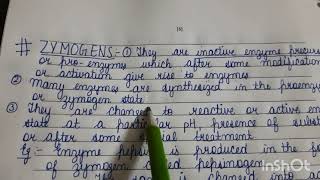 # ZYMOGENS = ① They are inactive enzyme precur
or pro-enzymes which after some modification
or activation give rise to enzymes
② many enzymes are synthesized in the proenzy
or zymogen state
③ They are changed to reactive or active en
state at a particular pH, presence of subst
or after some treatment
Eg :- Enzyme is produced in the
of zymogen called pepsinogen
is changed into
InShOt